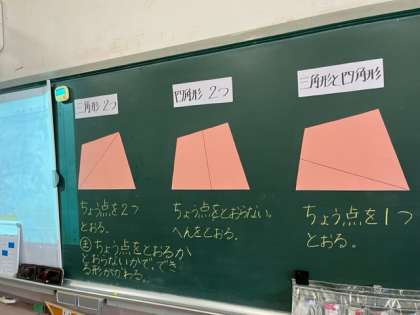 三角形 2つ
ちょう点を2つ
とおる。
ちょう点をとおるか
とおらないかで、でき
る形がかわる。
四角形 2つ
ちょう点をとおらない。
へんをとおる。
三角形と四角形
ちょう点を1つ
とおる。